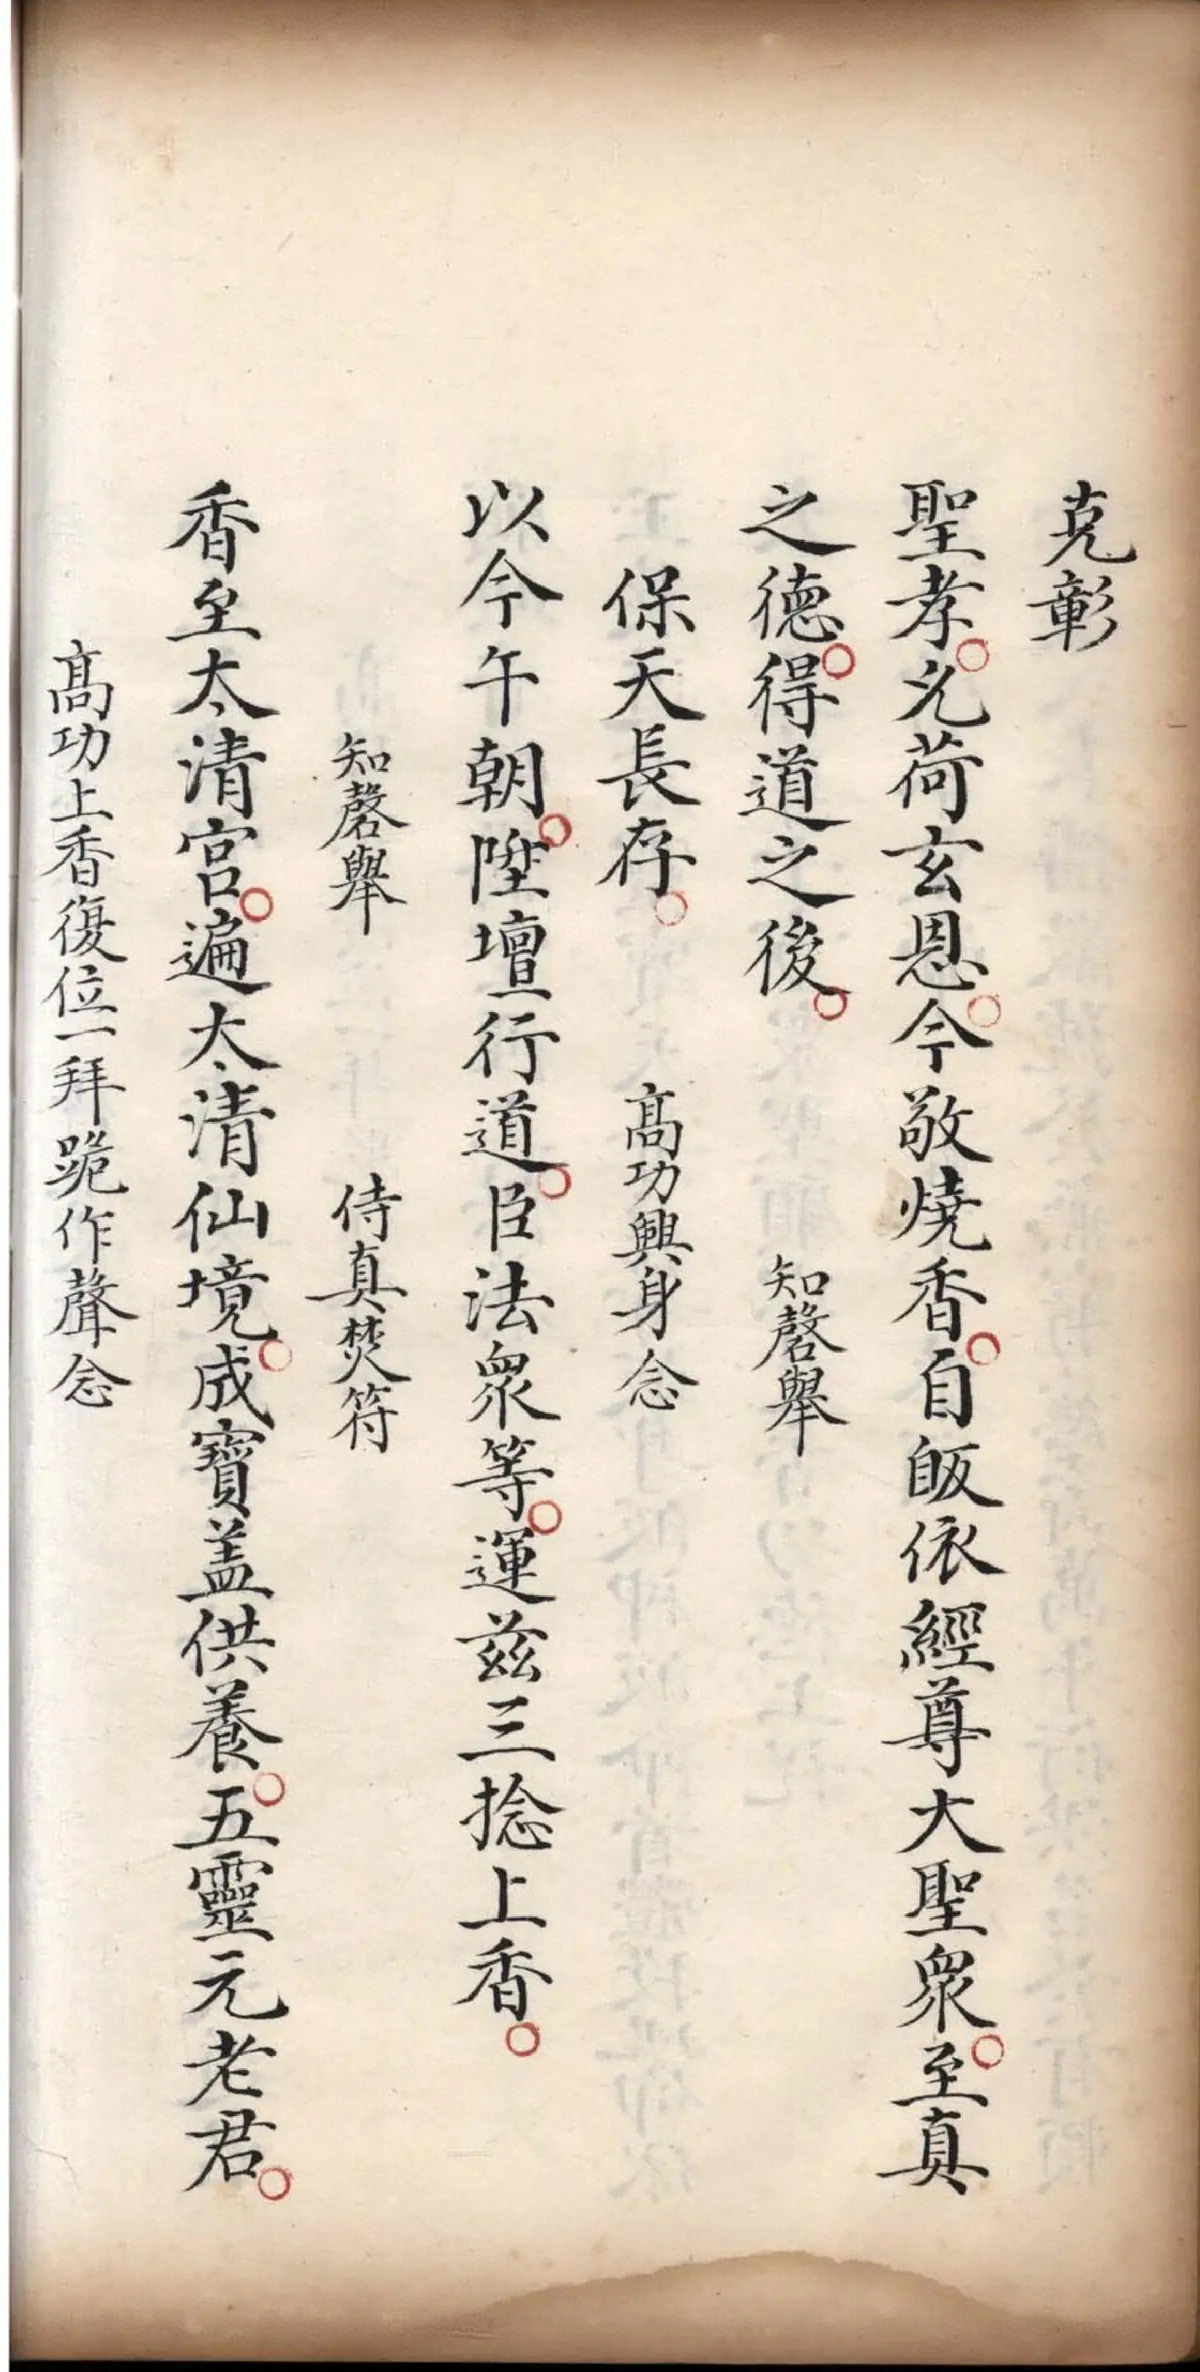 克彰
聖孝。允荷玄恩。今敬燒香。自皈依經尊大聖衆。至真
之德。得道之後。 知磬舉
保天長存。 高功興身念
以今午朝。陞壇行道。臣法衆等。運茲三捻上香。
知磬舉 侍真焚符
香至太清宫。遍太清仙境。成寶盖供養。五靈元老君。
高功上香復位一拜跪作聲念